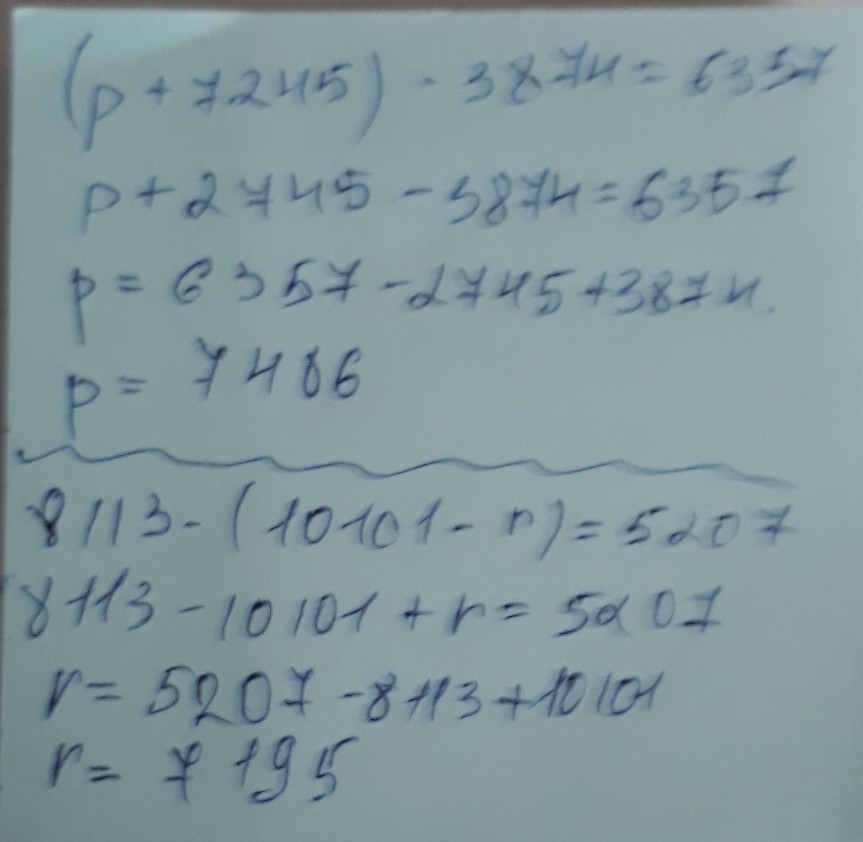 (p + 7245) - 3874 = 6357
p + 2745 - 3874 = 6357
p = 6357 - 2745 + 3874.
p = 7486
8113 - (10101 - r) = 5207
8113 - 10101 + r = 5207
r = 5207 - 8113 + 10101
r = 7195